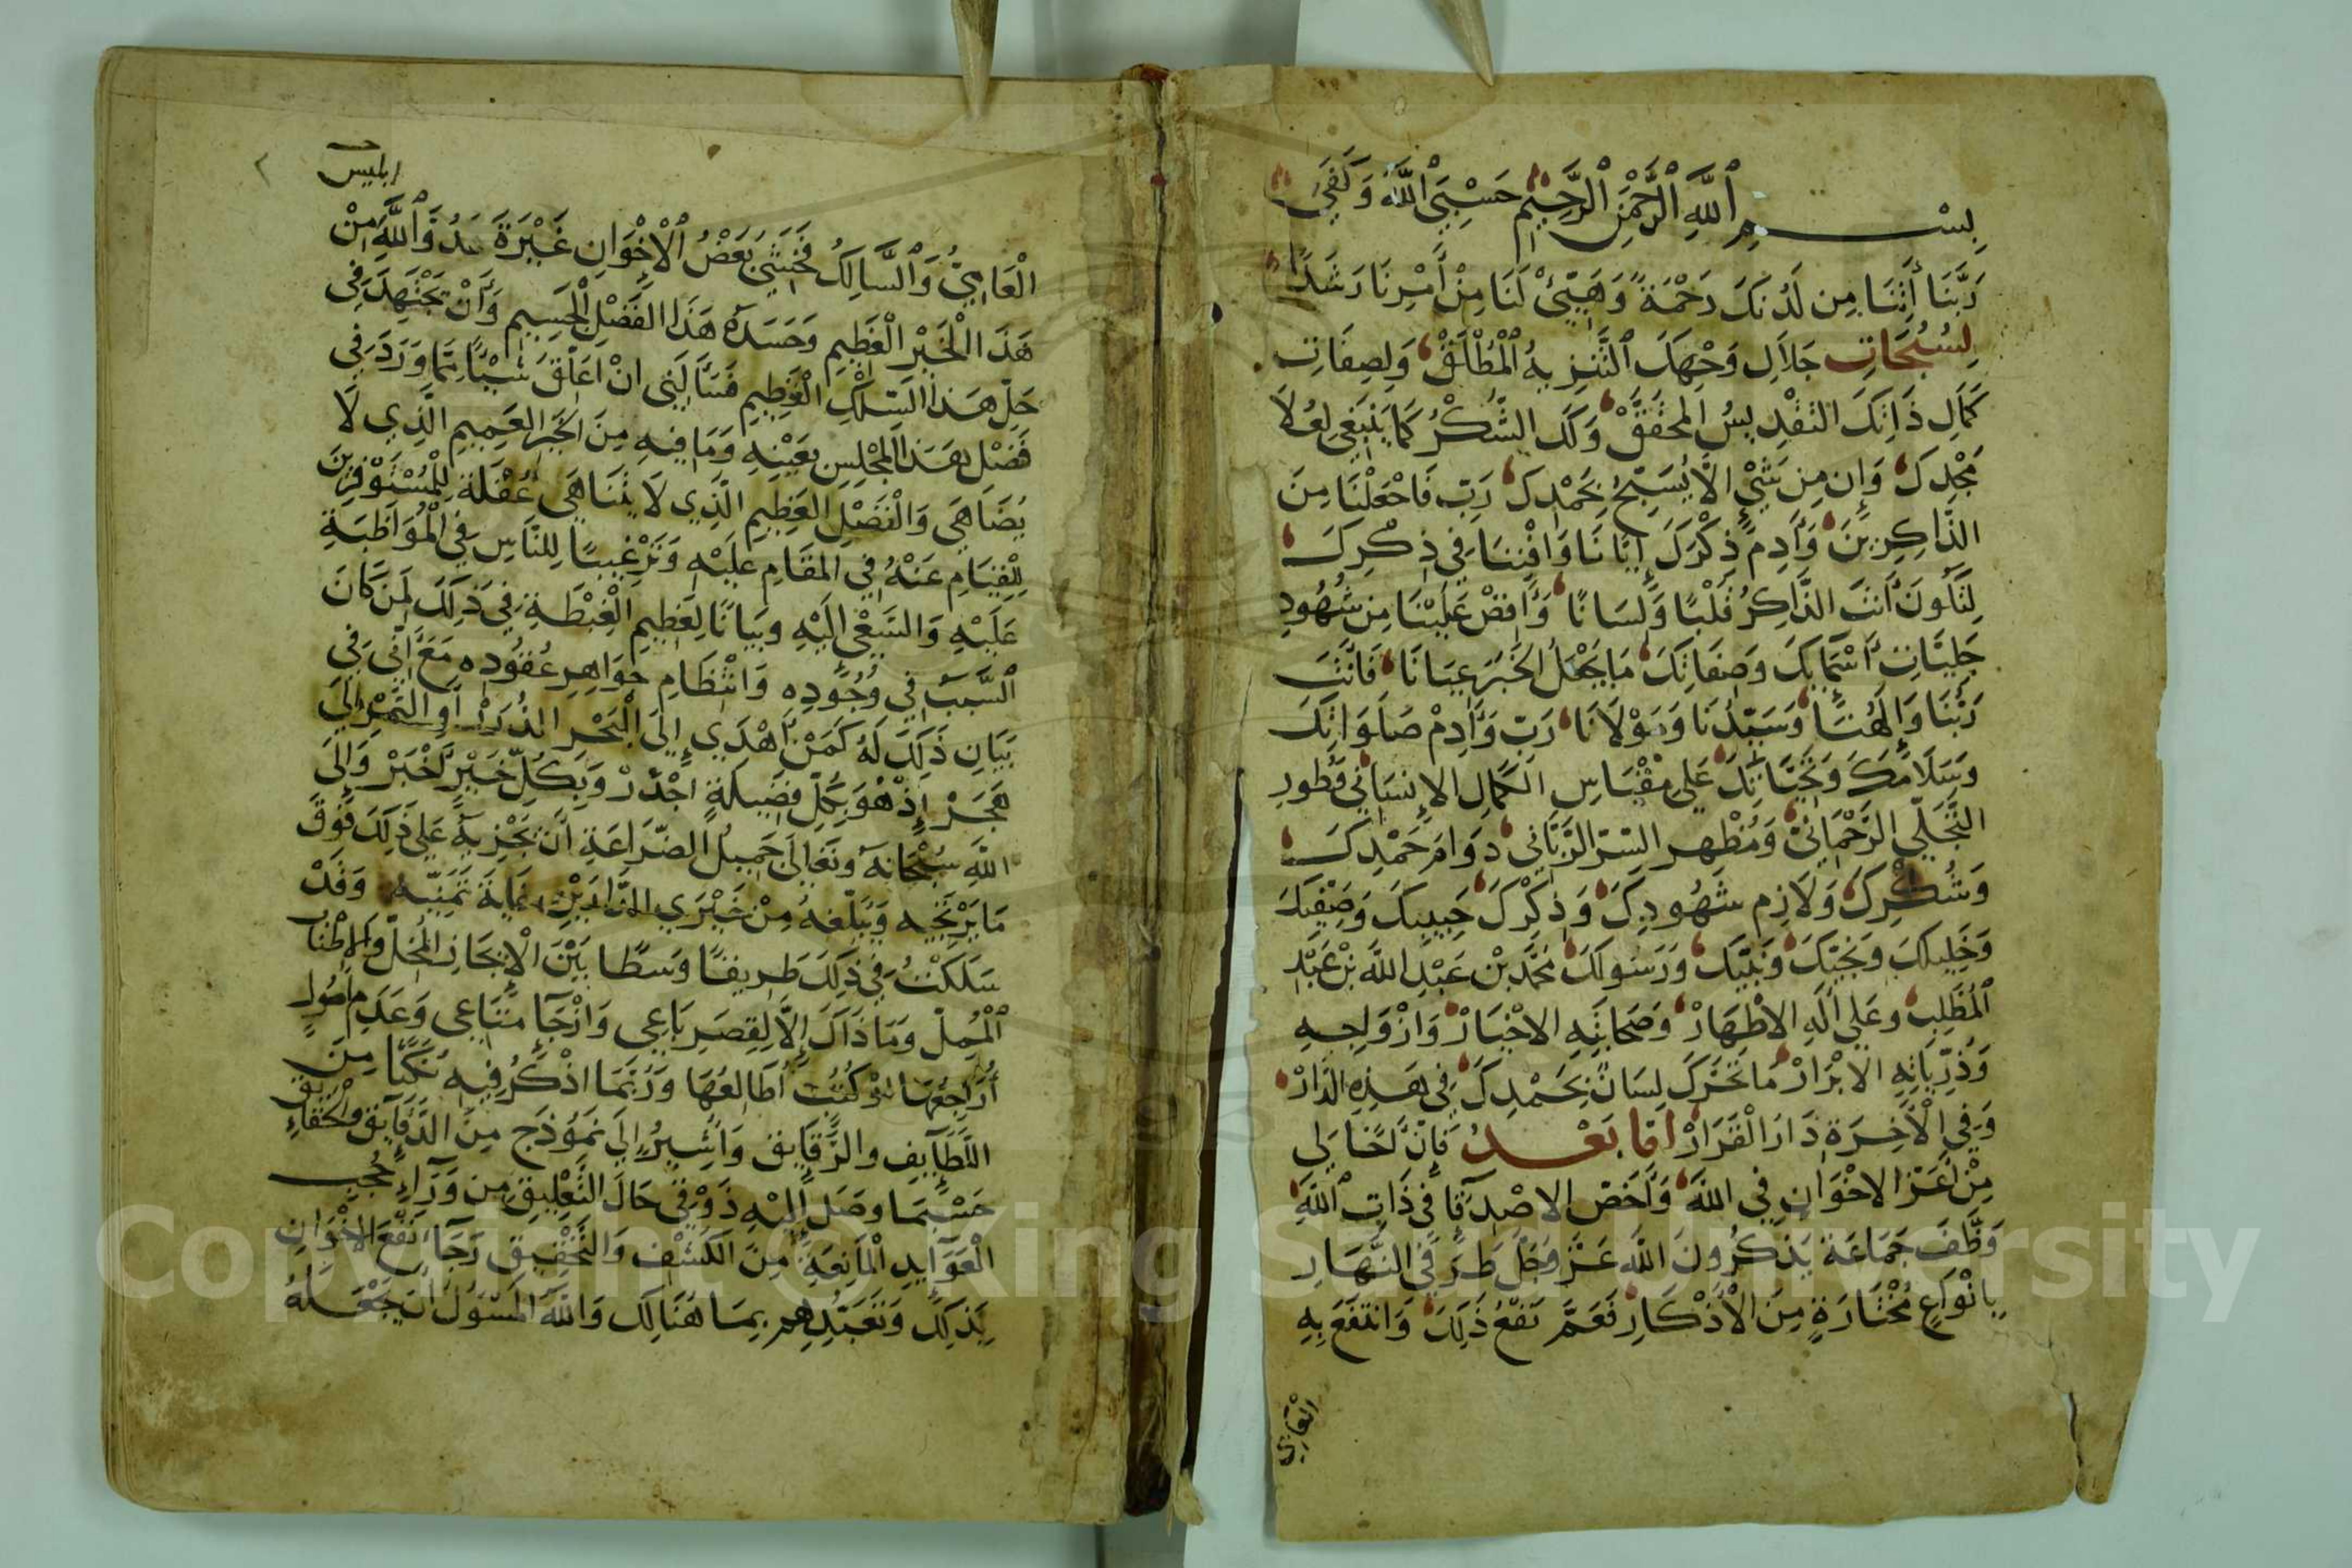 بِسْمِ ٱللَّهِ ٱلرَّحْمَنِ ٱلرَّحِيمِ حَسْبِيَ ٱللَّهُ وَكَفَى
رَبَّنَا أَتِنَا مِن لَدُنكَ رَحْمَةً وَهَيِّئْ لَنَا مِنْ أَمْرِنَا رَشَدًا
لِسُبُحَاتِ جَلَالِ وَجْهِكَ ٱلتَّنْزِيهُ ٱلْمُطْلَقْ وَلِصِفَاتِ
كَمَالِ ذَاتِكَ التَقْدِيسُ المحَقَقْ وَلَكَ الشُّكْرُ كَمَا يَنْبَغِي لِعُلَا
مَجْدِكَ وَإِن مِن شَيْءٍ إِلَّا يُسَبِّحُ بِحَمْدِكَ رَبِّ فَاجْعَلْنَا مِنَ
الذَّاكِرِينَ وَأَدِمْ ذِكْرَكَ إِيَّانَا وَافْنِنَا فِي ذِكْرِكَ
لِتَكُونَ أَنتَ الذَّاكِرُ قَلْبًا وَلِسَانًا وَأَفِضْ عَلَيْنَا مِن شُهُودِ
جَلِيَّاتِ أَسْمَايِكَ وَصِفَاتِكَ مَا يَجْعَلُ الخَبَرَ عِيَانًا فَأَنْتَ
رَبُّنَا وَإِلَهُنَا وَسَيِّدُنَا وَمَوْلَانَا رَبِّ وَأَدِمْ صَلَوَاتِكَ
وَسَلَامَكَ وَتَحِيَّاتِكَ عَلَى مِقْيَاسِ الكَمَالِ الإِنسَانِي وَطُورِ
التَّجَلِّي الرَّحْمَانِيّ وَمُظْهِر السّرّ الرَّبَّانِي دَوَامَ حَمْدِكَ
وَشُكْرِكَ وَلَازِم شُهُودِكَ وَذِكْرِكَ حَبِيبِكَ وَصَفِيِّكَ
وَخَلِيلِكَ وَنَجِيِّكَ وَنَبِيِّكَ وَرَسُولِكَ مُحَمَّد بْن عَبْدِ اللَّه بْن عَبْد
ٱلْمُطَّلِبْ وعَلَى آلِهِ الاطْهَارْ وَصَحَابَتِهِ الاخْيَارْ وَازْوَاجِهِ
وَذُرِّيَاتِهِ الابْرَارْ مَا تَحَرَّكَ لِسَانٌ بِحَمْدِكَ فِي هَذِهِ الدَّارْ
وَفِي الْآخِرَةِ دَارَ الْقَرَارْ امّا بَعْدُ فَإِنَّ أَخًا لِي
مِنْ أَعَزّ الاخْوَانِ فِي اللَّه وَأَخَصّ الاصْدِقَا فِي ذَاتِ ٱللَّهِ
وَظَّفَ جَمَاعَة يَذْكُرُونَ اللَّه عَزَّ وَجَلَّ طَرَفَي النَّهَارِ
بِانْوَاعٍ مُخْتَارَةٍ مِنَ الْأَذْكَارِ فَعَمَّ نَفْعُ ذَلِكَ وَانتَفَعَ بِهِ
العامي
ابليس
٢
الْعَامِيُّ وَٱلسَّالِكُ فَخَشِيَ بَعْضُ ٱلْإِخْوَانِ غَيْرَةَ عَدُوّ ٱللَّهِ مِنْ
هَذَا الْخَيْرِ الْعَظِيمِ وَحَسَدَهُ هَذَا الفَضْلِ الْجَسِيمِ وَأَنْ يَجْتَهِدَ فِي
حَلِّ هَذَا السّلْكِ الْعَظِيمِ فَسَأَلَنِي انْ اعَلِّقَ شَيْئًا مِمَّا وَرَدَ فِي
فَضْلِ هَذَا المجْلِسِ بِعَيْنِهِ وَمَا فِيهِ مِنَ الخَيْرِ العَمِيمِ الَّذِي لَا
يُضَاهَى وَالْفَضْلِ العَظِيمِ الَّذِي لَا يَتَنَاهَى عُقْلَةً لِلْمُسْتَوْفِزِينَ
لِلْقِيَامِ عَنْهُ فِي المقَامِ عَلَيْهِ وَتَرْغِيبًا لِلنَّاسِ فِي الْمُوَاظَبَةِ
عَلَيْهِ وَالسَّعْي إِلَيْهِ وَبَيَانًا لِعَظِيمِ الْغِبْطَةِ فِي ذَلِكَ لِمَن كَانَ
ٱلسَّبَبَ فِي وُجُودِهِ وَانْتِظَامِ جَوَاهِرِ عُقُودِهِ مَعَ أَنِّي فِي
بَيَانِ ذَلِكَ لَهُ كَمَنْ أَهْدَي إِلَى الْبَحْرِ الدُّرَرْ أَوِ التَّمْرَ إِلَى
هَجَرْ إِذْ هُوَ بِكُلِّ فَضِيلَةٍ اجْدَرْ وَبِكُلِّ خَيْرٍ أَخْبَرْ وَإِلَى
اللَّهِ سُبْحَانَهُ وَتَعَالَى جَمِيلُ الضّرَاعَةِ أَنْ يَجْزِيَهُ عَلَى ذَلِكَ فَوْقَ
مَا يَرْتَجِيهِ وَيُبَلِّغهُ مِنْ خَيْرَي الدَّارَيْنِ غَايَةَ تَمَنِّيهِ وَقَدْ
سَلَكْتُ فِي ذَلِكَ طَرِيقًا وَسَطًا بَيْنَ الْإِيجَازِ المخِلّ وَالاطْنَابِ
ٱلْمُمِلّ وَمَا ذَاكَ إِلَّا لِقِصَرِ بَاعِي وَازْجَاءِ مَتَاعِي وَعَدَمِ أُصُولٍ
أُرَاجِعُهَا اوْ كُتُبٍ أُطَالِعُهَا وَرُبَّمَا اذْكُرُ فِيهِ نُكَتًا مِنَ
اللَّطَآيِفِ وَالرَّقَايِقِ وَأُشِيرُ إِلَى نَمُوذَجٍ مِنَ الدَّقَايِقِ وَالحَقَايِقِ
حَسْبَمَا وَصَلَ إِلَيْهِ ذَوْقِي حَالَ التَّعْلِيقِ مِن وَرَاءِ حُجُبِ
الْعَوَآيِدِ الْمَانِعَةِ مِنَ الكَشْفِ وَالتَّحْقِيقِ رَجَاءَ نَفْعِ الإِخْوَانِ
بِذَلِكَ وَتَعَبّدِهِم بِمَا هُنَالِكَ وَاللَّهُ المَسْئُولُ أَنْ يَجْعَلَهُ
Copyright © King Saud University